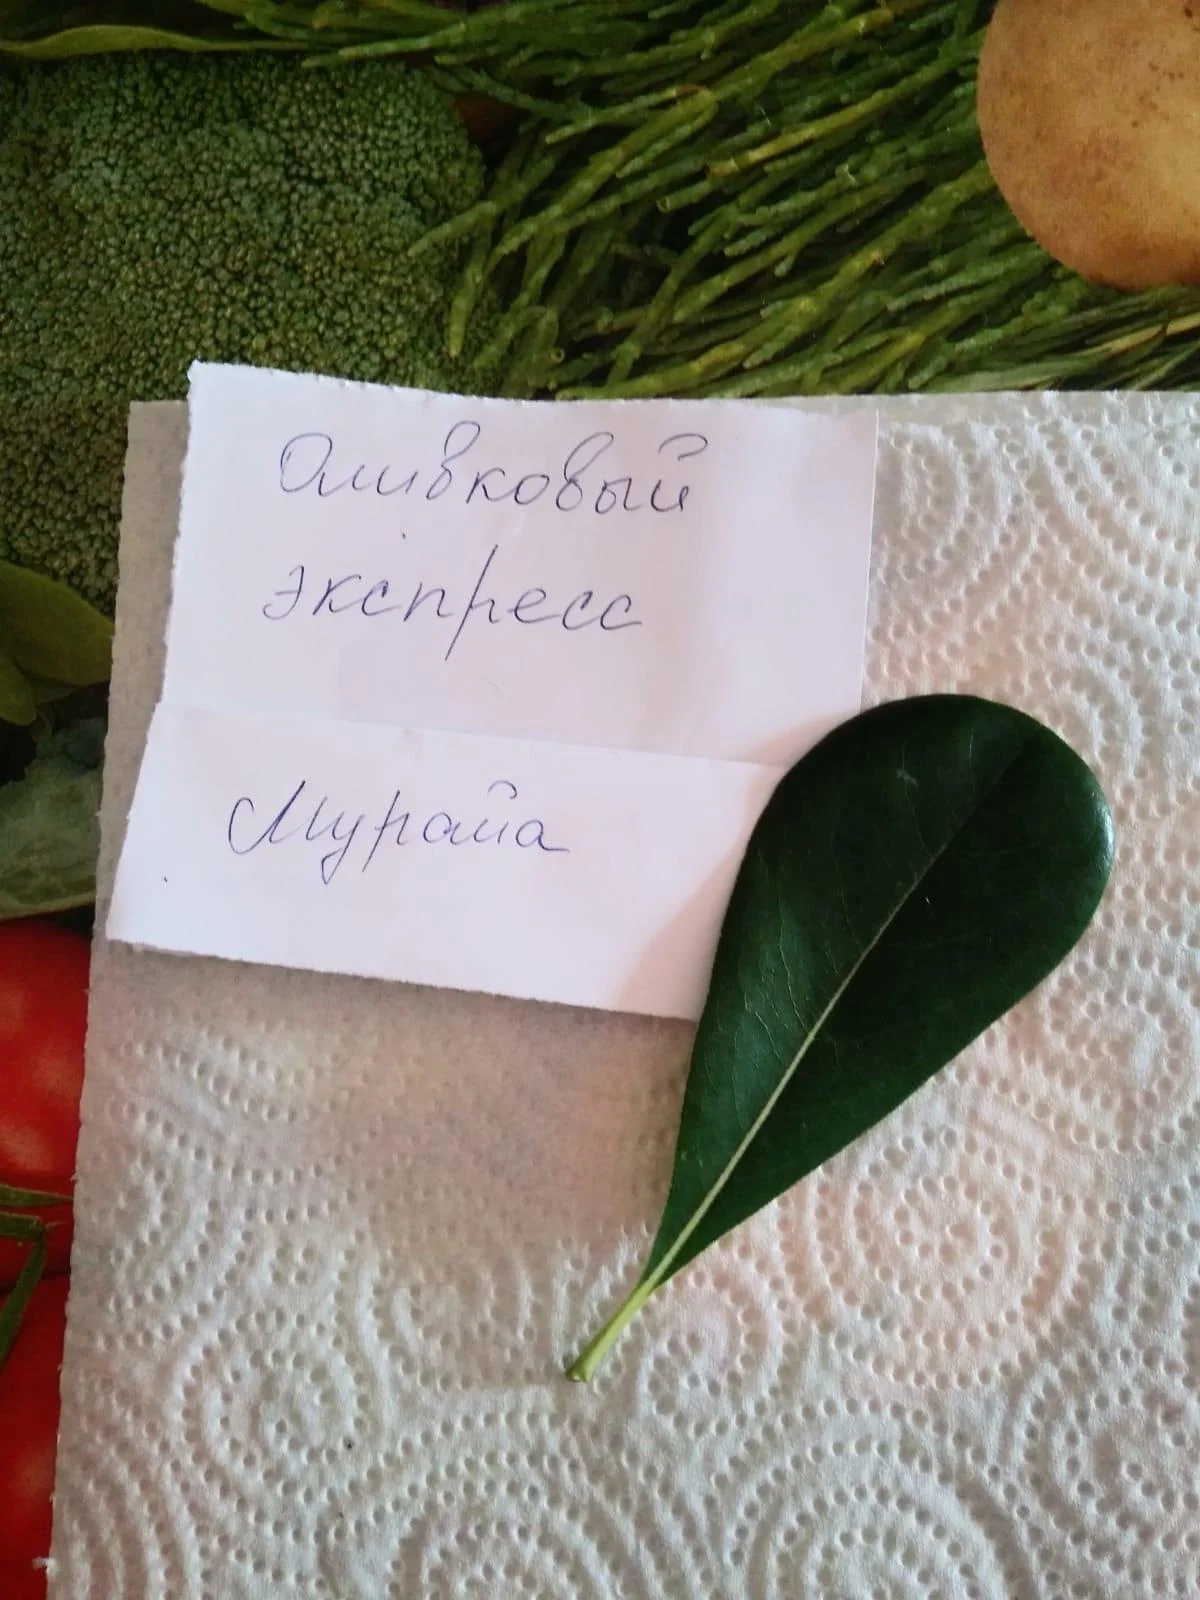 Оливковый
экспресс
Мурайа